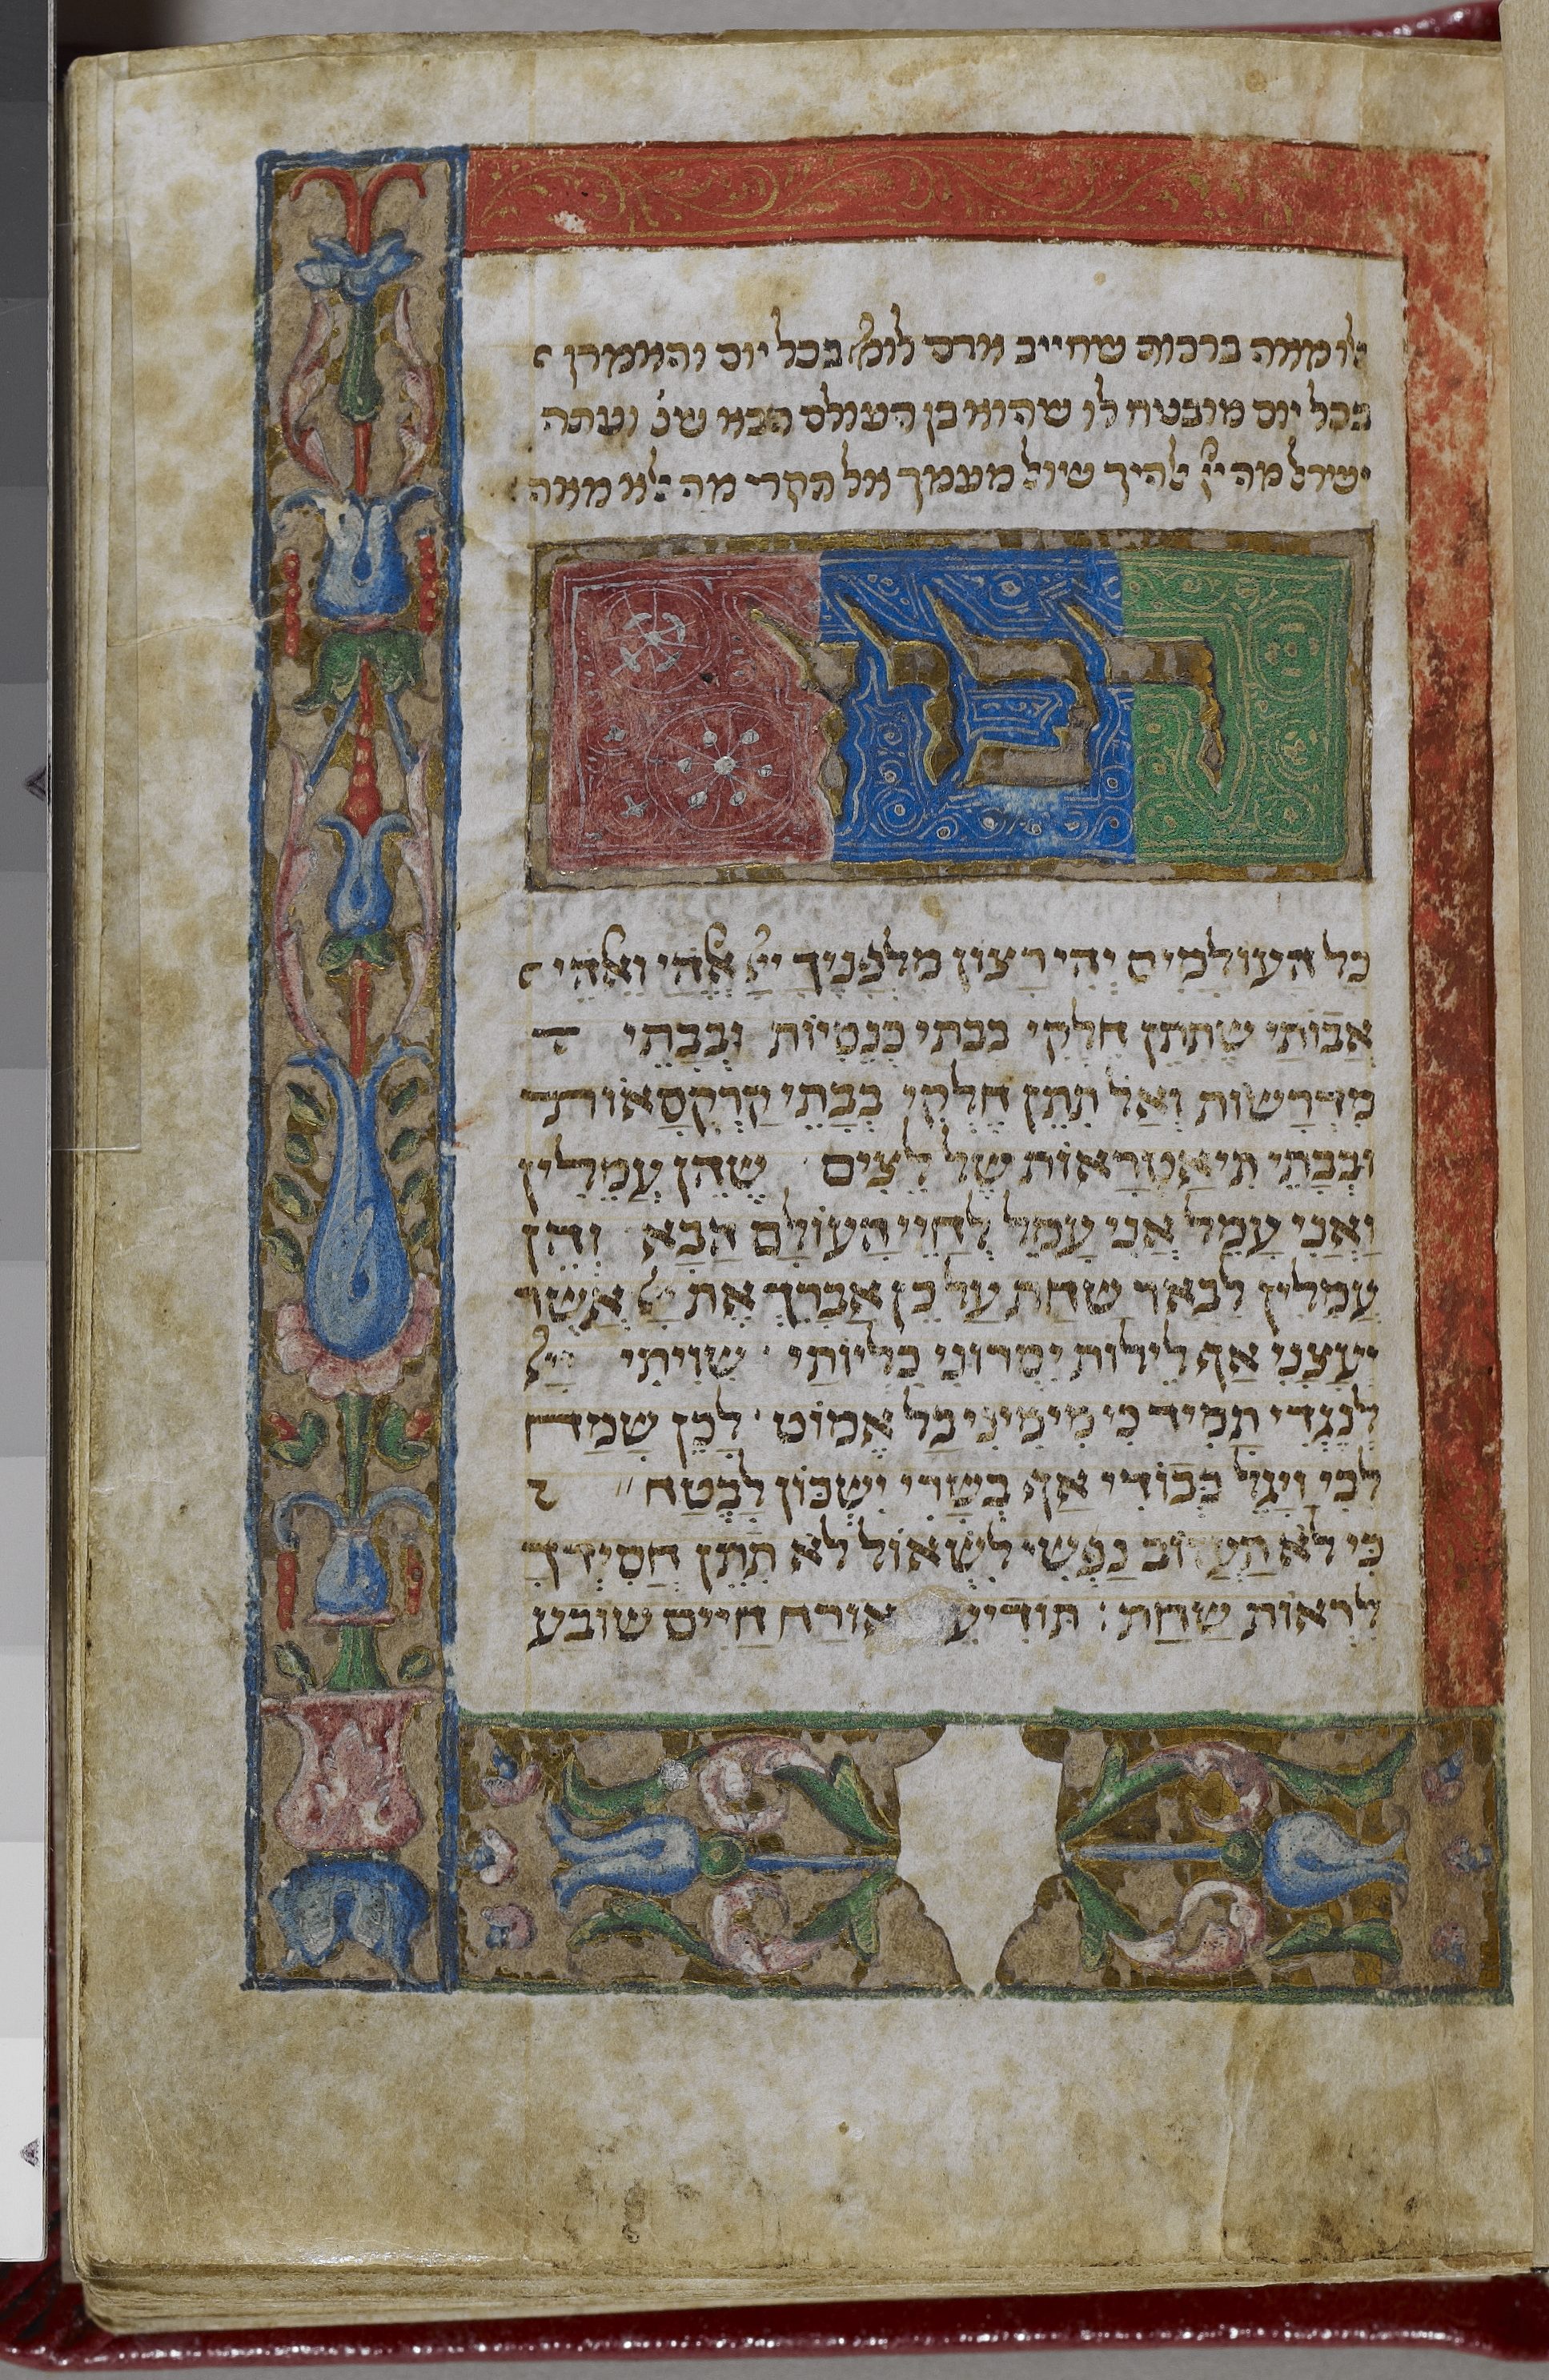 אלו מאה ברכות שחייב אדם לומ' בכל יום והאומרן
בכל יום מובטח לו שהוא בן העולם הבא שנ' ועתה
ישראל מה יי' אלהיך שואל מעמך אל תקרי מה אלא מאה
רבון
כל העולמים יהי רצון מלפניך ייי אלהי ואלהי
אבותי שתתן חלקי בבתי כנסיות ובבתי
מדרשות ואל תתן חלקי בבתי קרקסאות
ובבתי תיאטראות של לצים שהן עמלין
ואני עמל אני עמל לחיי העולם הבא והן
עמלין לבאר שחת על כן אברך את ייי אשר
יעצני אף לילות יסרוני כליותי · שויתי ייי
לנגדי תמיד כי מימיני בל אמוט · לכן שמח
לבי ויגל כבודי אף בשרי ישכון לבטח
כי לא תעזוב נפשי לשאול לא תתן חסידיך
לראות שחת : תודיע אורח חיים שובע